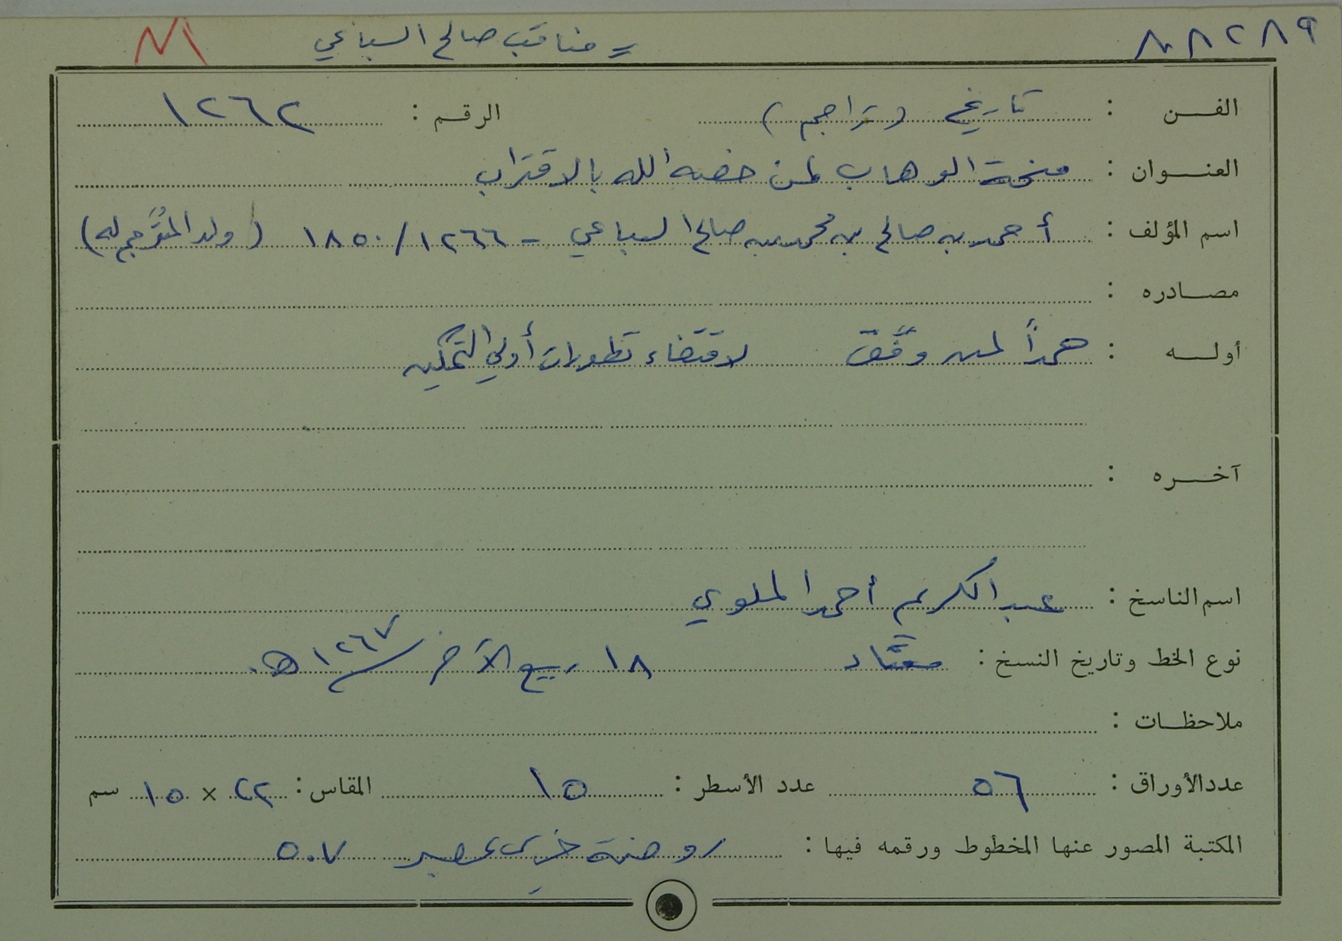 = مناقب صالح السباعي
الفن : تاريخ (تراجم) الرقم : ١٢٦٢
العنوان : منحة الوهاب لمن خصه الله بالاقتراب
اسم المؤلف : أحمد بن صالح بن محمد بن صالح السباعي - ١٢٦٦/١٨٥٠ (ولد المُتَرجم له)
مصادره :
أوله : حمداً لمن وفّق لاقتضاء تطورات أولي التمكين
آخره :
اسم الناسخ : عبد الكريم أحمد الملوي
نوع الخط وتاريخ النسخ : معتاد ١٨ ربيع الآخر ١٢٦٧ هـ.
ملاحظات :
عدد الأوراق : ٥٦ عدد الأسطر : ١٥ المقاس : ٢٢ × ١٥ سم
المكتبة المصور عنها المخطوط ورقمه فيها : روضة خيري بمصر ٥٠٧